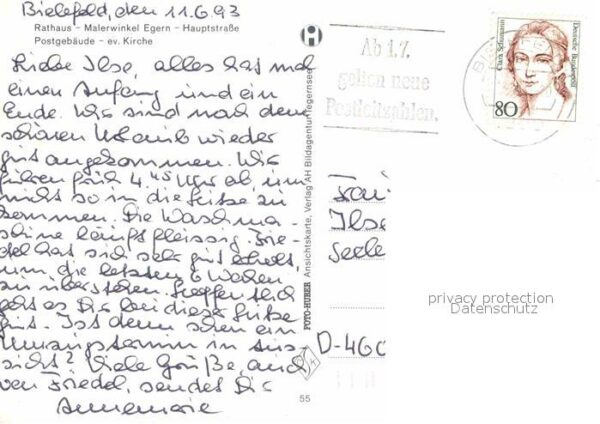 Bielefeld, den 11.6.93
Rathaus - Malerwinkel Egern - Hauptstraße
Postgebäude - ev. Kirche
Liebe Ilse, alles hat mal
einen Anfang und ein
Ende. Wir sind nach dem
schönen Urlaub wieder
gut angekommen. Wir
fuhren früh 4.45 Uhr ab, um
nicht so in die Hitze zu
kommen. Die Waschma-
schine läuft fleissig. Frie-
del hat sich sehr gut erholt
um die letzten 6 Wochen
zu überstehen. Hoffentlich
geht es Dir bei dieser Hitze
gut. Ist denn schon ein
Umzugstermin in Aus-
sicht? Viele Grüße, auch
von Friedel, sendet Dir
Annemarie
FOTO-HUBER Ansichtskarte, Verlag AH Bildagentur-Tegernsee
55
Ab 1.7.
gelten neue
Postleitzahlen.
Clara Schumann
Deutsche Bundespost
80
Frau
Ilse
Seele
D-460
privacy protection
Datenschutz